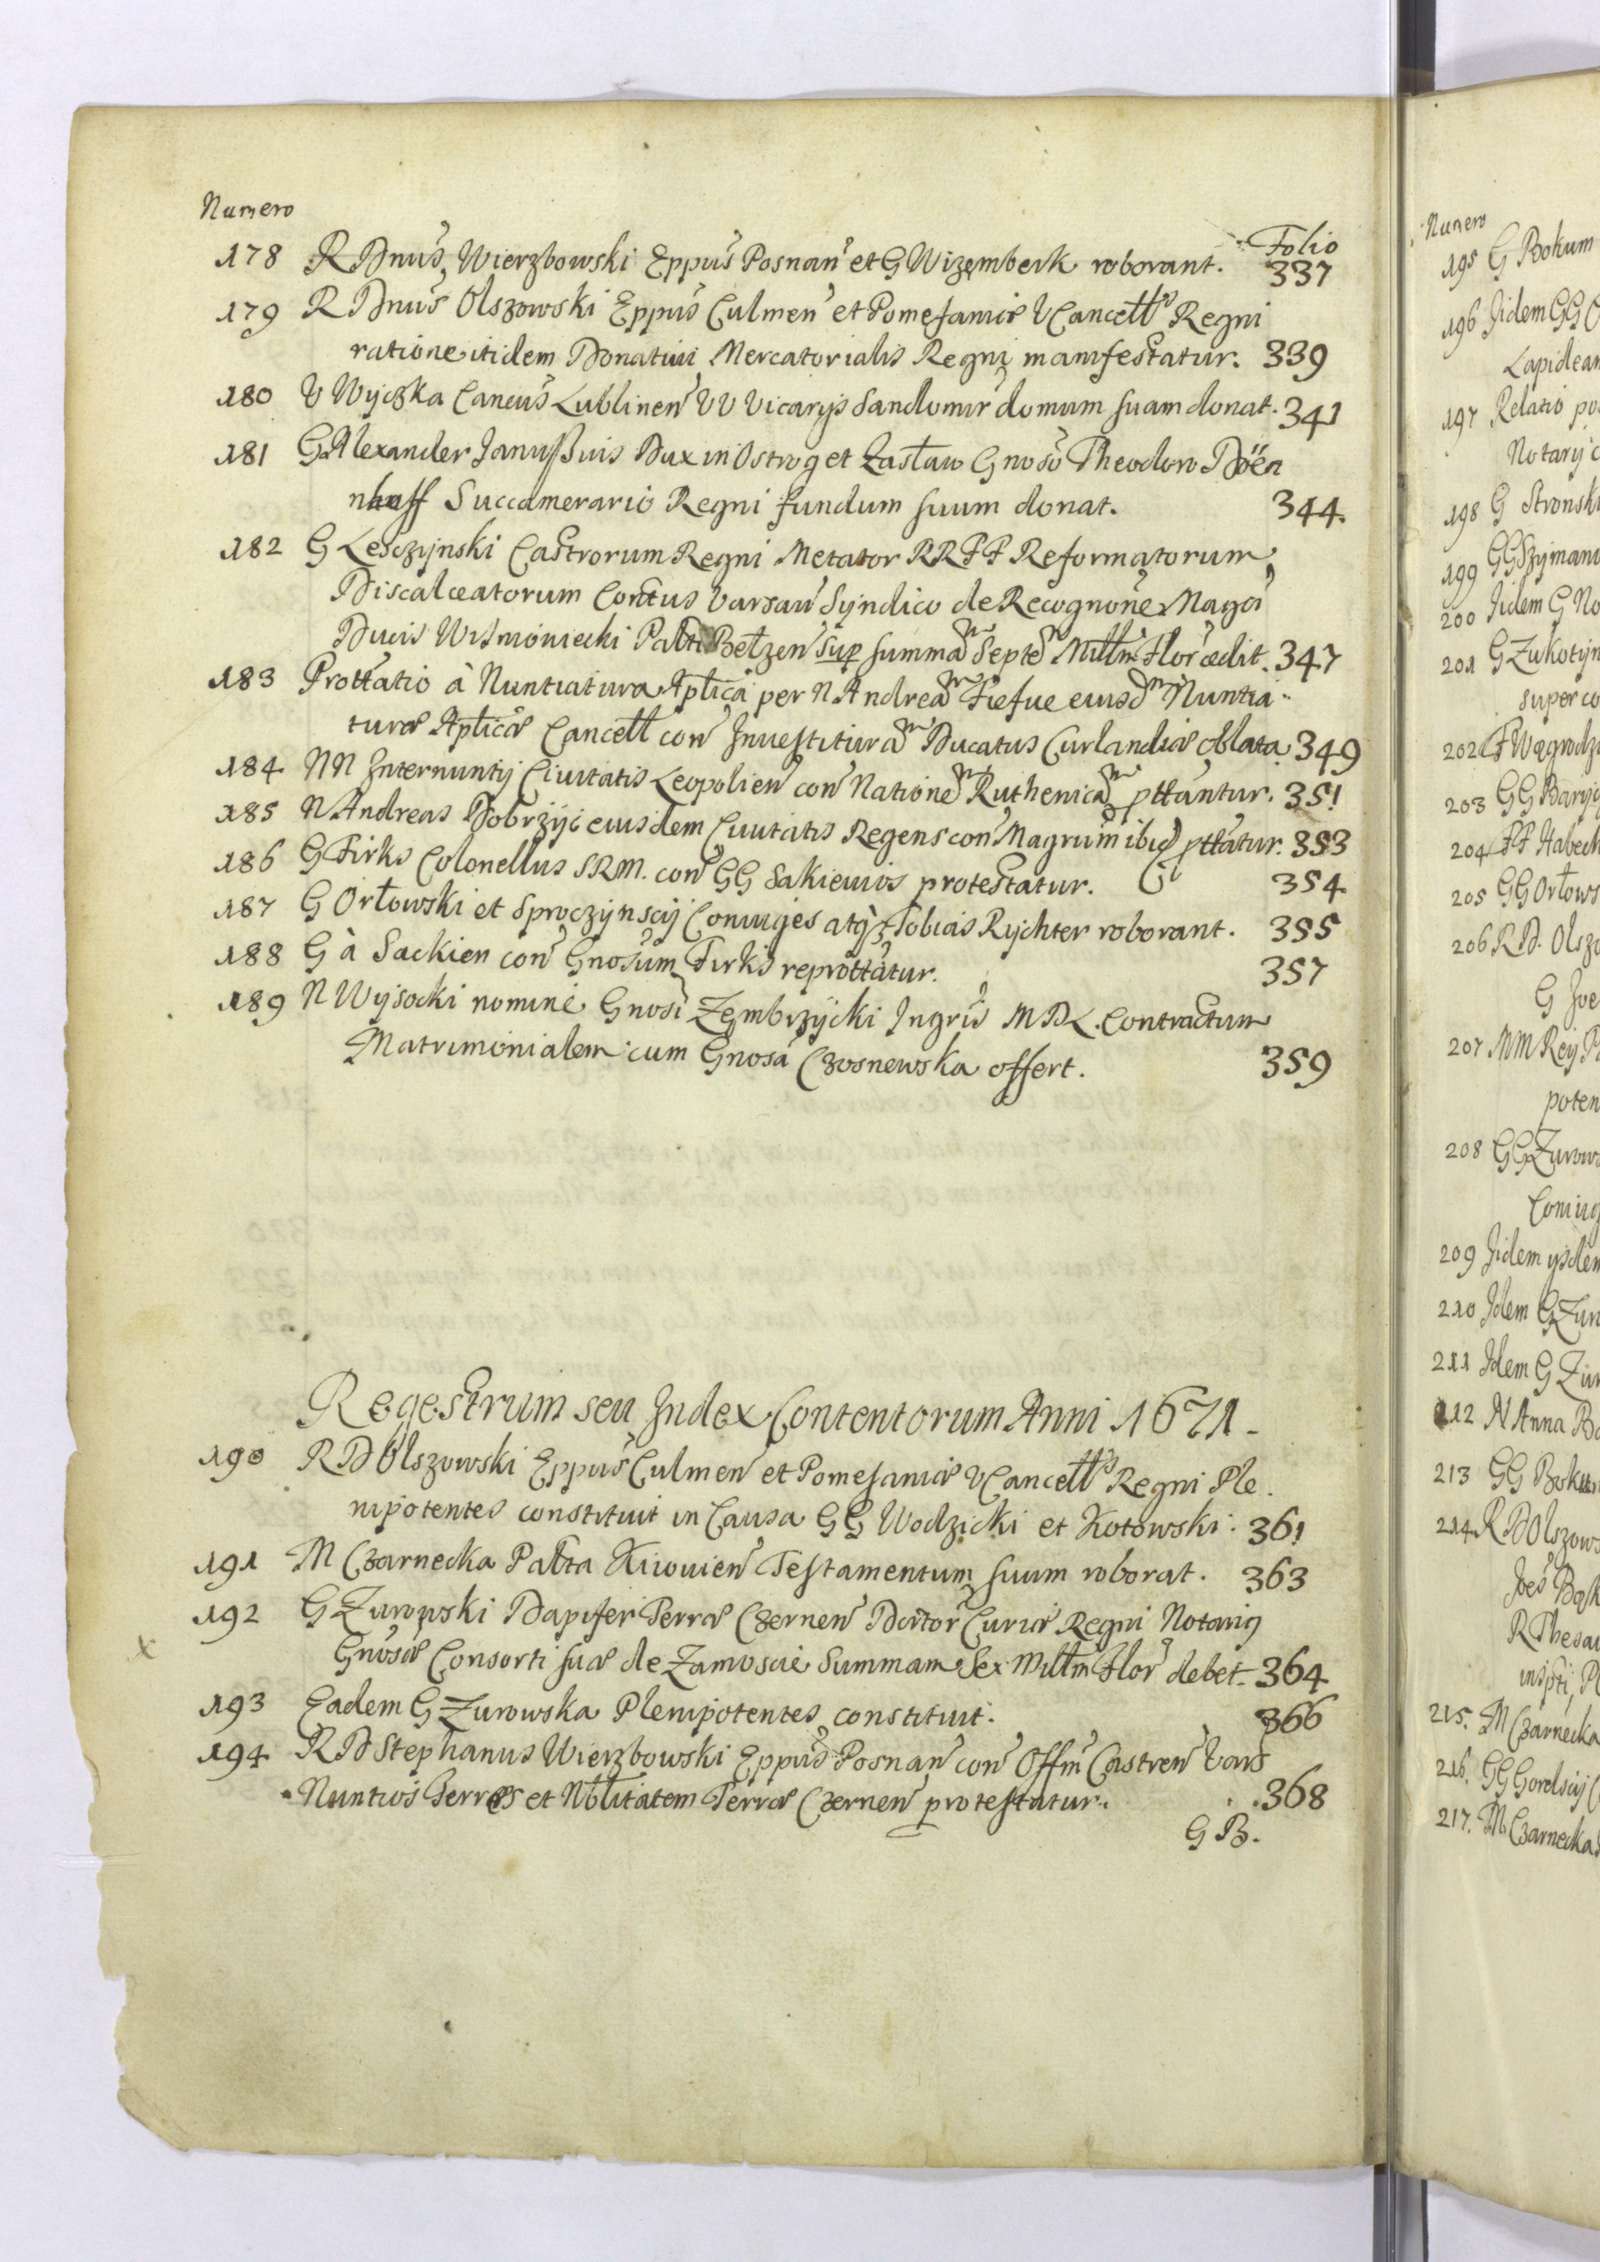 Numero
Folio
178 R Dnus Wierzbowski Eppus Posnan et G Wizemberk roborant. 337
179 R Dnus Olszowski Eppus Culmen et Pomesaniæ VCancells Regni
ratione itidem Donativi Mercatorialis Regni manifestatur. 339
180 V Wyczka Cancus Lublinen VV Vicarijs Sandomir domum suam donat. 341
181 G Alexander Janussuis Dux in Ostrog et Zasław Gnoso Theodoro Döen
nhoff Succamerario Regni fundum suum donat. 344.
182 G Lesczynski Castrorum Regni Metator RRPP Reformatorum
Discalceatorum Contus Varsav Syndico de Recognone Magci
Ducis Wisnioniecki Palti Bełzen sup summa Septe Millm Flor cedit. 347
183 Prottatio à Nuntiatura Aplica per N Andrea Fiefue eiusd Nuntia
turæ Aplicæ Cancell con Investitura Ducatus Curlandiæ oblata. 349
184 NN Internuntij Civitatis Leopolien con Natione Ruthenica pttantur. 351
185 N Andreas Dobrzyc eiusdem Civitatis Regens con Magrum ibid pttatur. 353
186 G Firks Colonellus SRM. con GG Sakienios protestatur. 354
187 G Orłowski et Sproczynscij Coniuges atq Tobias Rychter roborant. 355
188 G à Sackien con Gnosum Firks reprottatur. 357
189 N Wysocki nomine Gnosi Zembrzycki Ingris MDL Contractum
Matrimonialem cum Gnosa Czosnewska offert. 359
Regestrum seu Index Contentorum Anni 1671
190 R D Olszowski Eppus Culmen et Pomesaniæ VCancells Regni Ple
nipotentes constituit in Causa GG Wodzicki et Kotowski. 361
191 M Czarnecka Palta Kiiovien Testamentum suum roborat. 363
192 G Zurowski Dapifer Terræ Czernen Dator Curiæ Regni Notarius
Gnosæ Consorti suæ de Zamoscie Summam Sex Millm Flor debet 364
193 Eadem G Zurowska Plenipotentes constituit. 366
194 R D Stephanus Wierzbowski Eppus Posnan con Offm Castren Vars
Nuntios Terres et Noblitatem Terræ Czernen protestatur. 368
G B.
Numero
195 G Bokum
196 Jidem GG
Lapidean
197 Relatio
Notarij
198 G Stronski
199 GG Szymano
200 Jidem G No
201 G Zukotyn
super co
202 F Wągrodz
203 GG Baryc
204 FF Habech
205 GG Orłows
206 R D. Olszo
G Joe
207 MM Rey P
poten
208 GG Zurows
Coniug
209 Jidem ijsdem
210 Idem G Zur
211 Idem G Zur
212 N Anna Bo
213 GG Bokum
214 R D Olszows
Joes Bok
R Thesau
215. M Czarnecka
216. GG Gorelscij
217. M Czarnecka